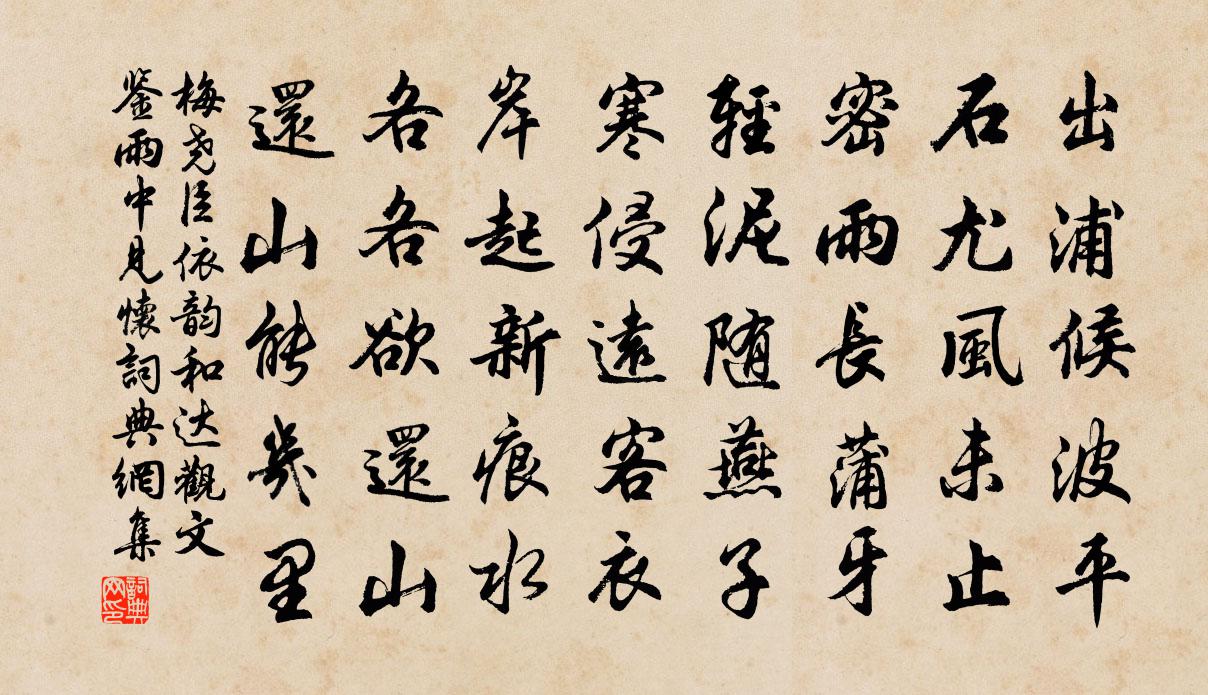 出浦候波平
石尤風未止
密雨長蒲牙
輕泥随燕子
寒侵遠客衣
岸起新痕水
各各欲還山
還山能幾里
梅尧臣依韵和达觀文
鉴雨中見懷詞典網集
詞典
网印